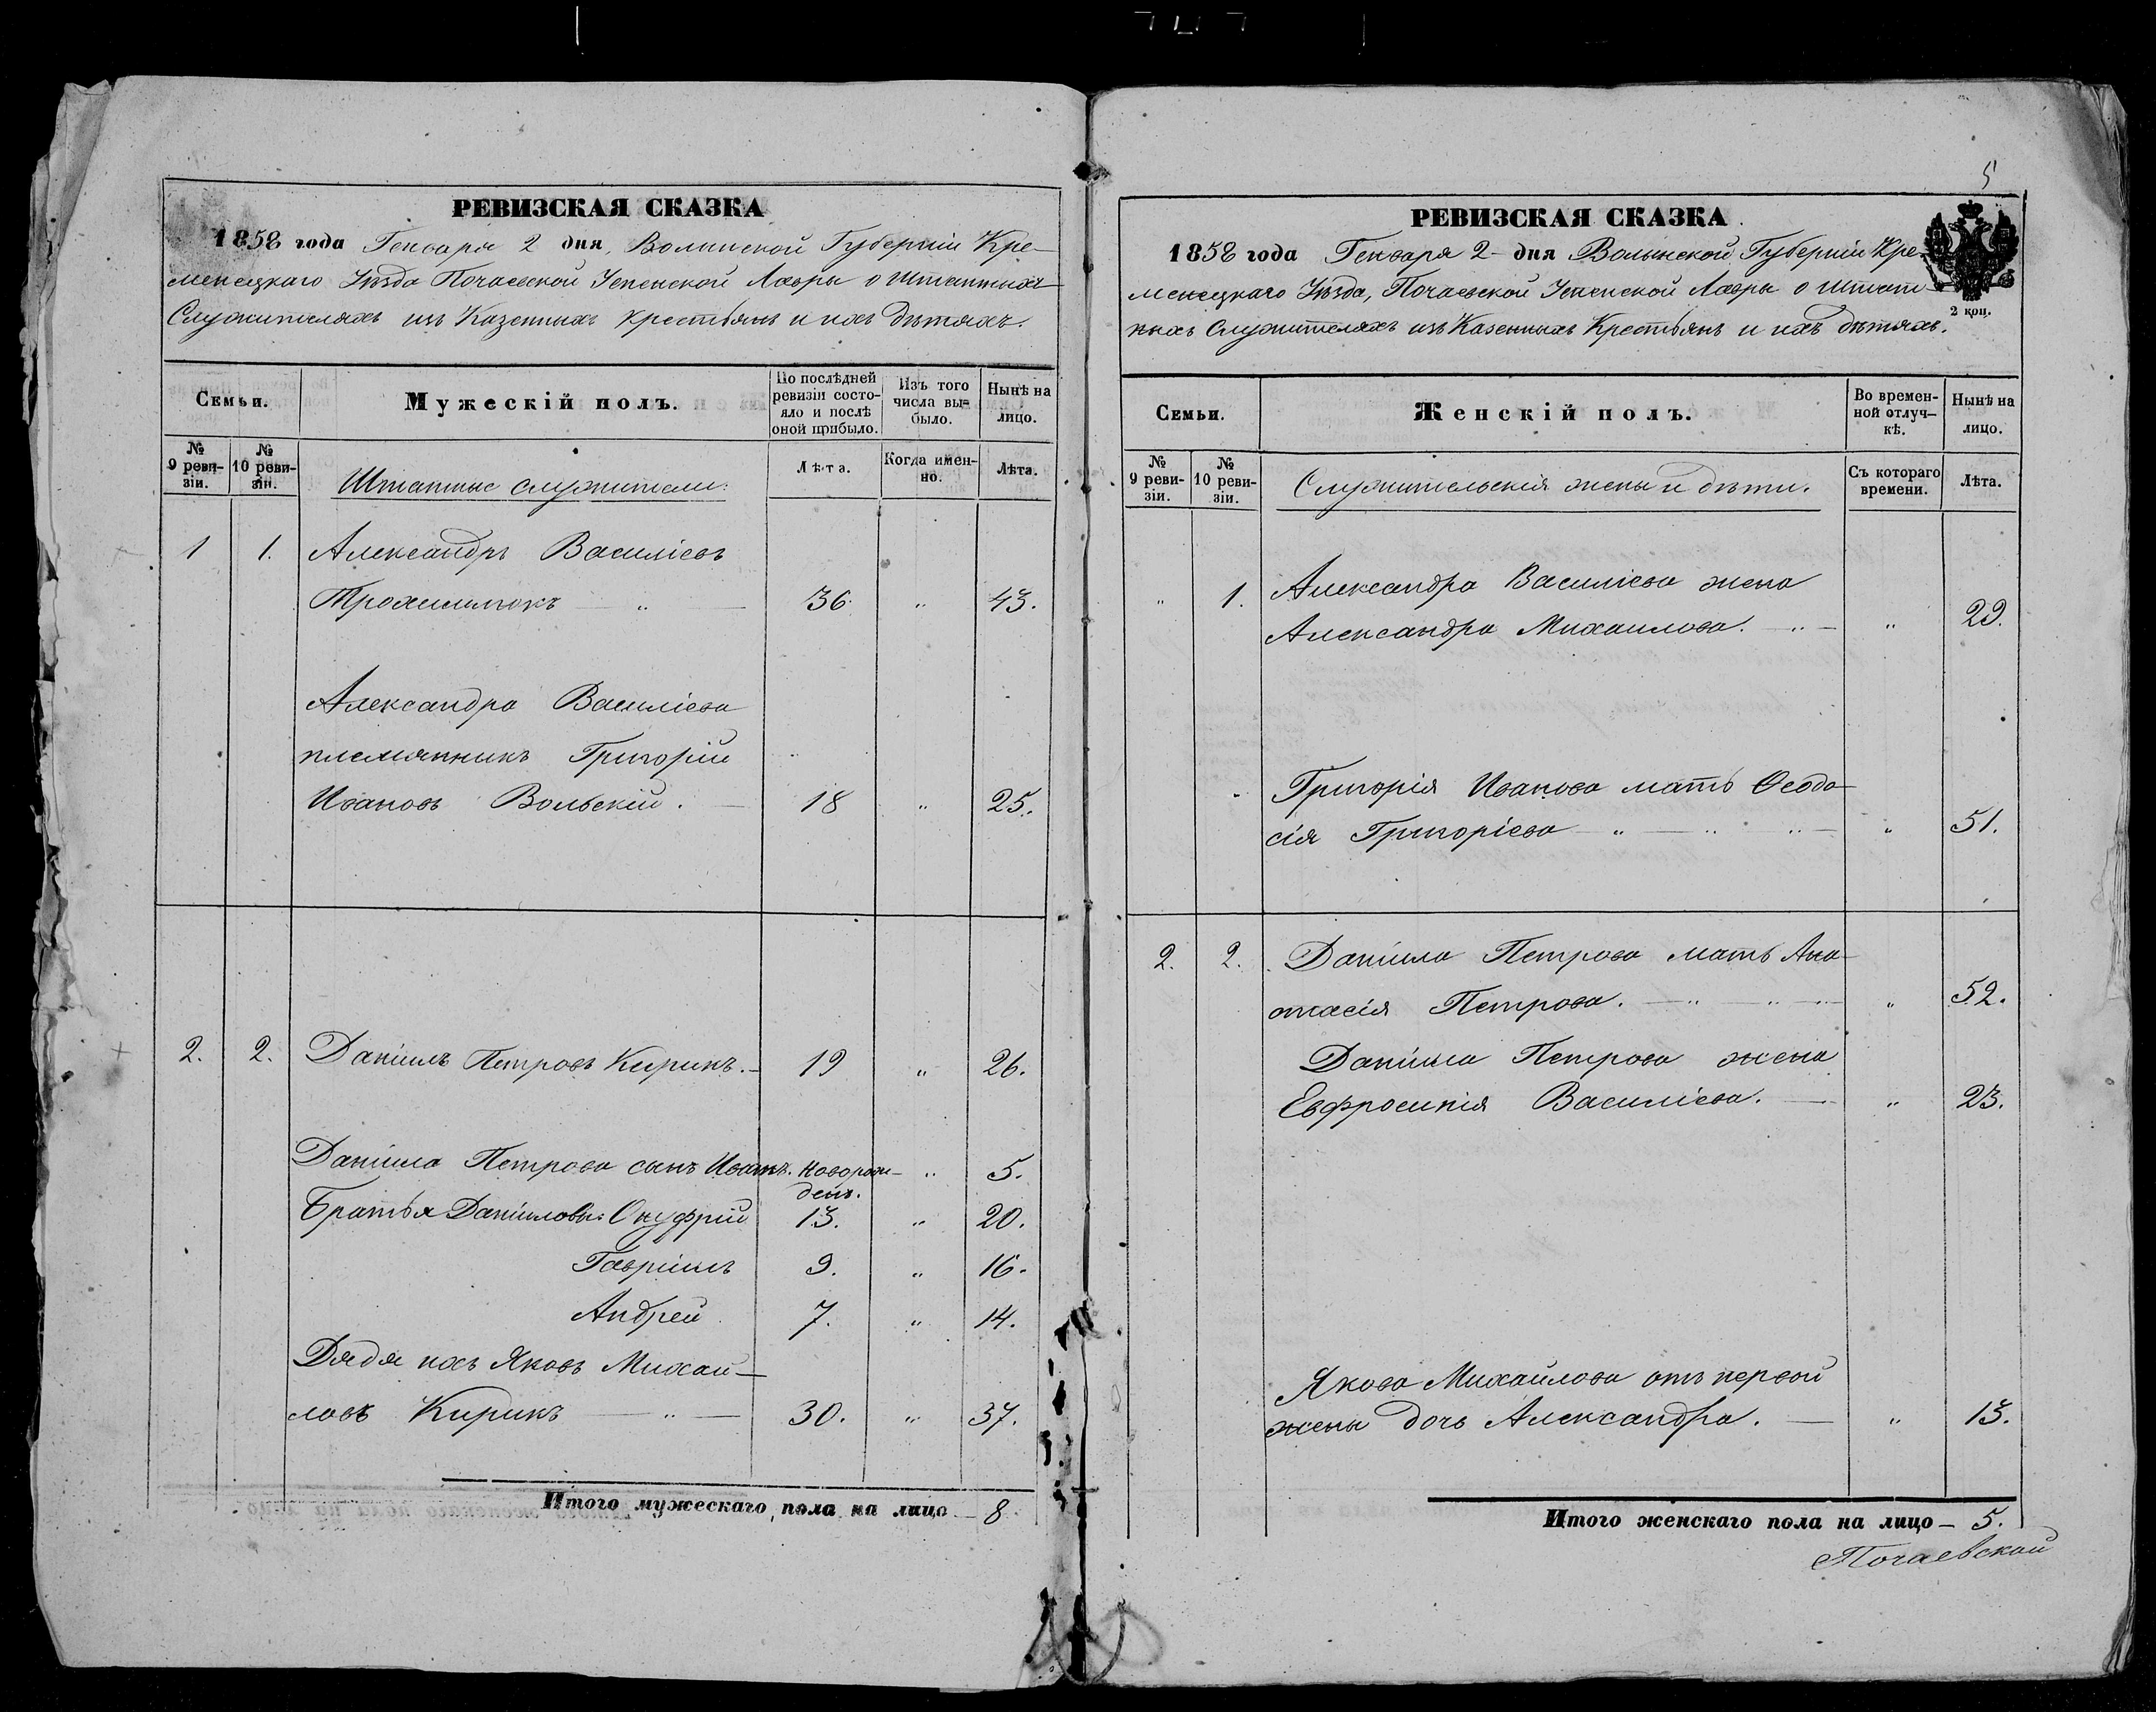 РЕВИЗСКАЯ СКАЗКА
1858 года Генваря 2 дня, Волынской Губерніи Кре-
менецкаго Уѣзда Почаевской Успенской Лавры о Штатныхъ
Служителяхъ изъ Казенныхъ крестьянъ и ихъ дѣтяхъ.
Семьи.
Мужескій полъ.
По послѣдней
ревизіи состо-
яло и послѣ
оной прибыло.
Изъ того
числа вы-
было.
Нынѣ на
лицо.
№
9 реви-
зіи.
№
10 реви-
зіи.
Штатные служители.
Лѣта.
Когда имен-
но.
Лѣта.
1 1. Александръ Василіевъ
Трохимлюкъ " 36. " 43.
Александра Василіева
племянникъ Григорій
Ивановъ Вольскій. 18 " 25.
2. 2. Даніилъ Петровъ Кирикъ. 19 " 26.
Даніила Петрова сынъ Иванъ. новорож- " 5.
денъ.
Братья Даніиловы: Онуфрій 13. " 20.
Гавріилъ 9. " 16.
Андрей 7. " 14.
Дядя ихъ Яковъ Михай-
ловъ Кирикъ " 30. " 37.
Итого мужескаго пола на лицо 8.
5
РЕВИЗСКАЯ СКАЗКА
1858 года Генваря 2 дня Волынской Губерніи Кре-
менецкаго Уѣзда, Почаевской Успенской Лавры о Штат-
ныхъ Служителяхъ изъ Казенныхъ Крестьянъ и ихъ дѣтяхъ.
2 коп.
Семьи.
Женскій полъ.
Во времен-
ной отлуч-
кѣ.
Нынѣ на
лицо.
№
9 реви-
зіи.
№
10 реви-
зіи.
Служительскія жены и дѣти.
Съ котораго
времени.
Лѣта.
" 1. Александра Василіева жена
Александра Михаилова. " " 29.
Григорія Иванова мать Ѳеодо-
сія Григоріева " " " " 51.
2. 2. Даніила Петрова мать Ана-
стасія Петрова. " " " " 52.
Даніила Петрова жена
Евфросинія Василіева. " 23.
Якова Михаилова отъ первой
жены дочь Александра. " 13.
Итого женскаго пола на лицо – 5.
Почаевской